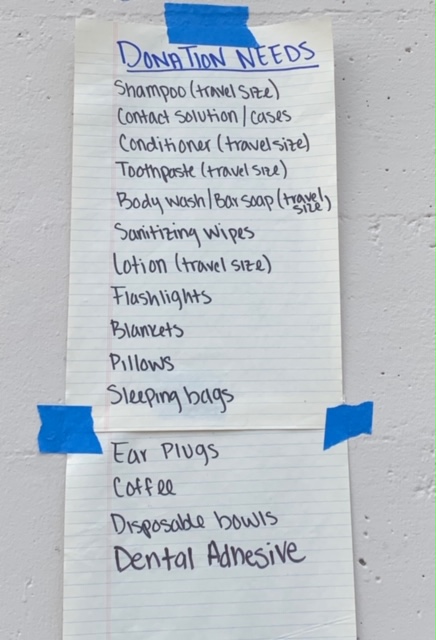 DONATION NEEDS
Shampoo (travel size)
Contact solution / cases
Conditioner (travel size)
Toothpaste (travel size)
Body wash / Bar soap (travel size)
Sanitizing wipes
Lotion (travel size)
Flashlights
Blankets
Pillows
Sleeping bags
Ear Plugs
Coffee
Disposable bowls
Dental Adhesive